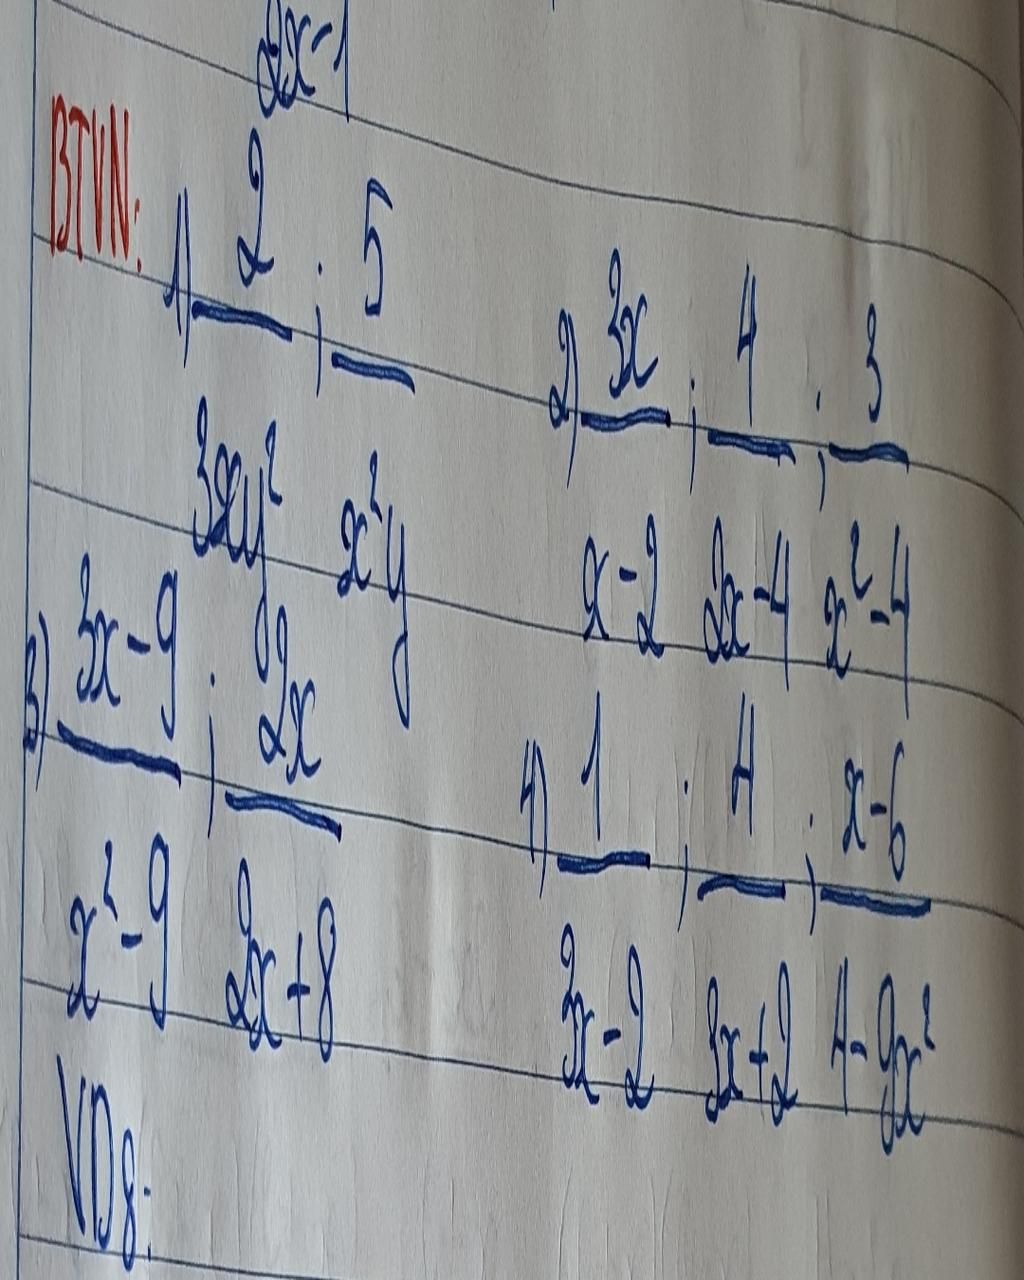 2x-1
BTVN:
1) 2/3xy² ; 5/x²y
2) 3x/x-2 ; 4/2x-4 ; 3/x²-4
3) 3x-9/x²-9 ; 2x/2x+8
4) 1/3x-2 ; 4/3x+2 ; x-6/4-9x²
VD8: